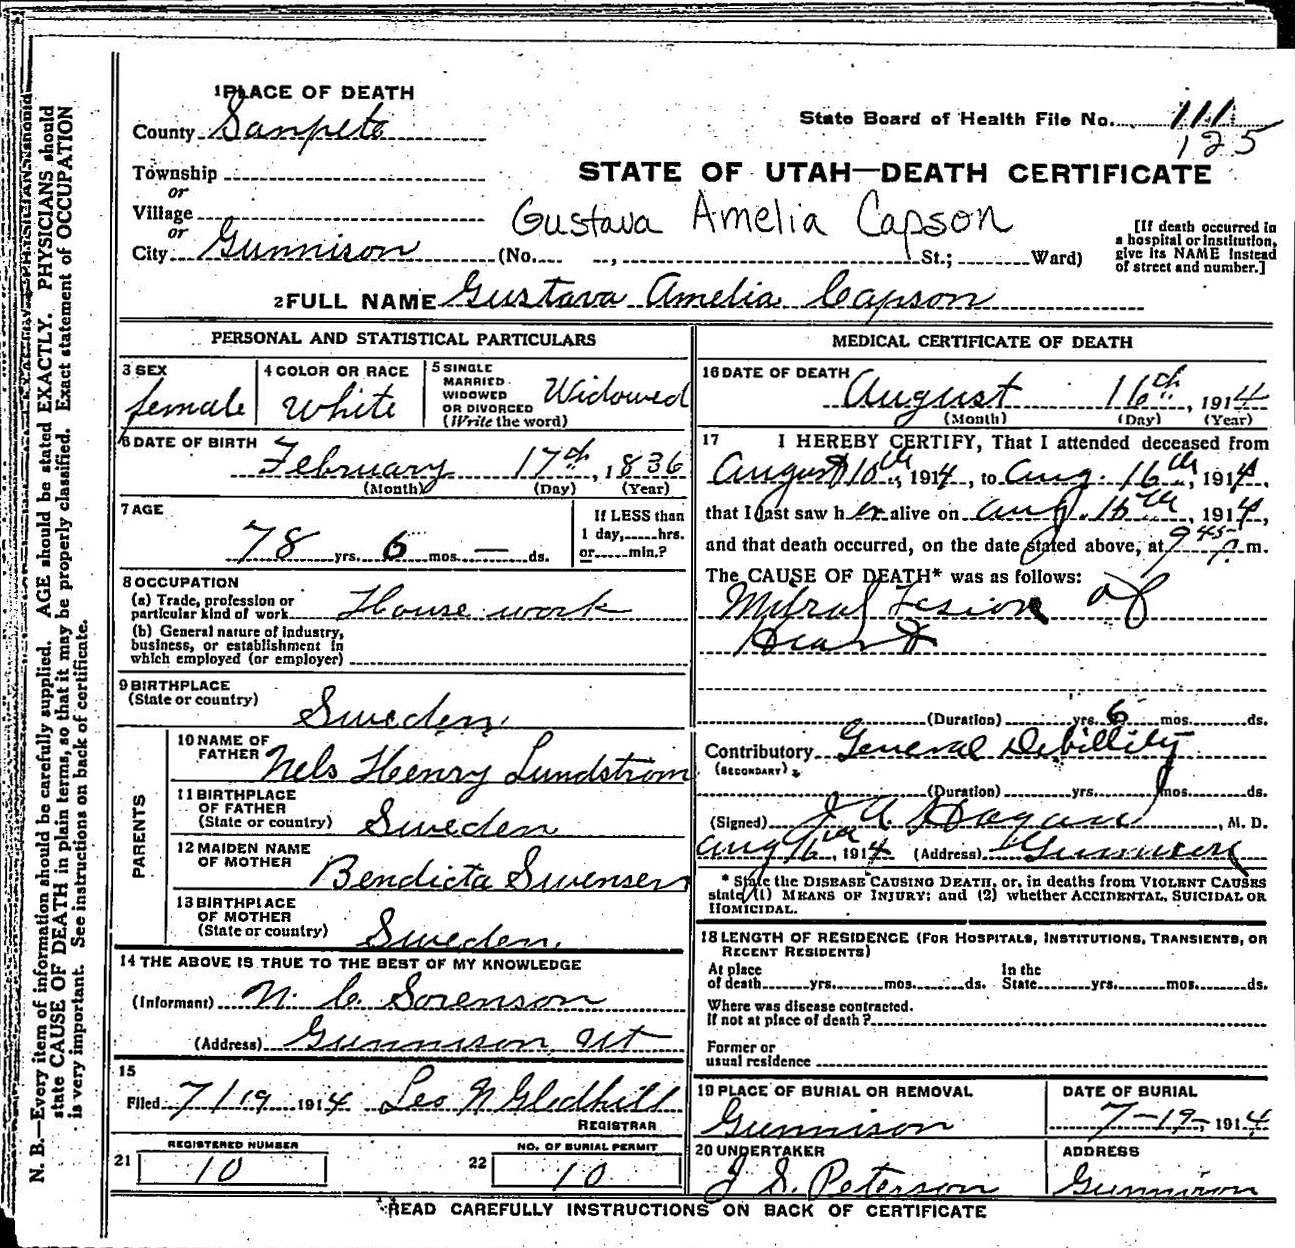 1 PLACE OF DEATH
County Sanpete
State Board of Health File No. 111
125
Township
or
Village
or
City Gunnison
STATE OF UTAH—DEATH CERTIFICATE
Gustava Amelia Capson
(No. , St.; Ward)
[If death occurred in
a hospital or institution,
give its NAME instead
of street and number.]
2 FULL NAME Gustava Amelia Capson
PERSONAL AND STATISTICAL PARTICULARS
3 SEX
female
4 COLOR OR RACE
White
5 SINGLE
MARRIED
WIDOWED
OR DIVORCED
(Write the word)
Widowed
6 DATE OF BIRTH
February 17th, 1836
(Month) (Day) (Year)
7 AGE
78 yrs. 6 mos. — ds.
If LESS than
1 day, hrs.
or min.?
8 OCCUPATION
(a) Trade, profession or
particular kind of work House work
(b) General nature of industry,
business, or establishment in
which employed (or employer)
9 BIRTHPLACE
(State or country)
Sweden
PARENTS
10 NAME OF
FATHER Nels Henry Lundstrom
11 BIRTHPLACE
OF FATHER
(State or country) Sweden
12 MAIDEN NAME
OF MOTHER
Bendicta Swensen
13 BIRTHPLACE
OF MOTHER
(State or country) Sweden
14 THE ABOVE IS TRUE TO THE BEST OF MY KNOWLEDGE
(Informant) N. C. Sorenson
(Address) Gunnison Ut
15
Filed 7/19 1914 Leo N Gledhill
REGISTRAR
REGISTERED NUMBER
21 10
NO. OF BURIAL PERMIT
22 10
MEDICAL CERTIFICATE OF DEATH
16 DATE OF DEATH
August 16th, 1914
(Month) (Day) (Year)
17 I HEREBY CERTIFY, That I attended deceased from
August 10th, 1914, to Aug. 16th, 1914,
that I last saw her alive on Aug. 16th, 1914,
and that death occurred, on the date stated above, at 9 45 P. m.
The CAUSE OF DEATH* was as follows:
Mitral Lesion of
Heart
(Duration) yrs. 6 mos. ds.
Contributory General Debillity
(SECONDARY)
(Duration) yrs. mos. ds.
(Signed) J A Hagan, M. D.
Aug 16th, 1914 (Address) Gunnison
* State the DISEASE CAUSING DEATH, or, in deaths from VIOLENT CAUSES
state (1) MEANS OF INJURY; and (2) whether ACCIDENTAL, SUICIDAL OR
HOMICIDAL.
18 LENGTH OF RESIDENCE (FOR HOSPITALS, INSTITUTIONS, TRANSIENTS, OR
RECENT RESIDENTS)
At place
of death yrs. mos. ds.
In the
State yrs. mos. ds.
Where was disease contracted.
If not at place of death?
Former or
usual residence
19 PLACE OF BURIAL OR REMOVAL
Gunnison
DATE OF BURIAL
7-19- 1914
20 UNDERTAKER
J S. Peterson
ADDRESS
Gunnison
READ CAREFULLY INSTRUCTIONS ON BACK OF CERTIFICATE
N. B.—Every item of information should be carefully supplied. AGE should be stated EXACTLY. PHYSICIANS should
state CAUSE OF DEATH in plain terms, so that it may be properly classified. Exact statement of OCCUPATION
is very important. See instructions on back of certificate.